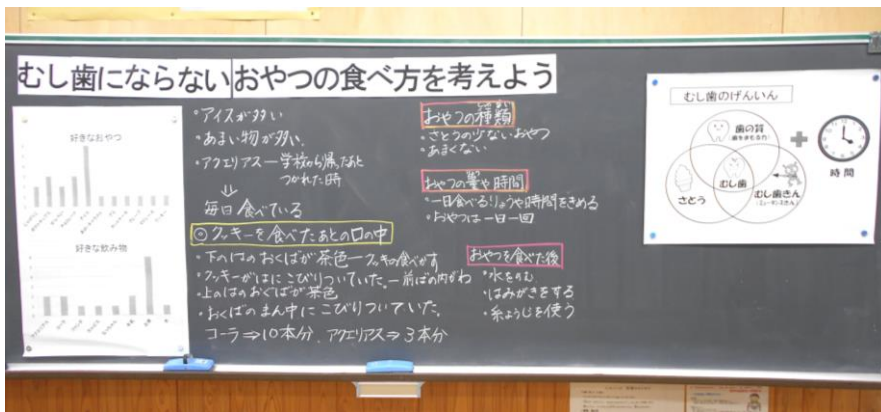 むし歯にならないおやつの食べ方を考えよう
好きなおやつ
好きな飲み物
・アイスが多い
・あまい物が多い。
・アクエリアス―学校から帰ったあと
つかれた時
⇓
毎日食べている
◎クッキーを食べたあとの口の中
・下のはのおくばが茶色―クッキーの食べかす
・クッキーがはにこびりついていた。―前ばの内がわ
・上のはのおくばが茶色
・おくばのまん中にこびりついていた。
コーラ⇒10本分、アクエリアス⇒3本分
おやつの種類
・さとうの少ないおやつ
・あまくない
おやつの量や時間
・一日食べるりょうや時間をきめる
・おやつは一日一回
おやつを食べた後
・水をのむ
・はみがきをする
・糸ようじを使う
むし歯のげんいん
歯の質
さとう
むし歯
むし歯きん
(ミュータンスきん)
+
時間